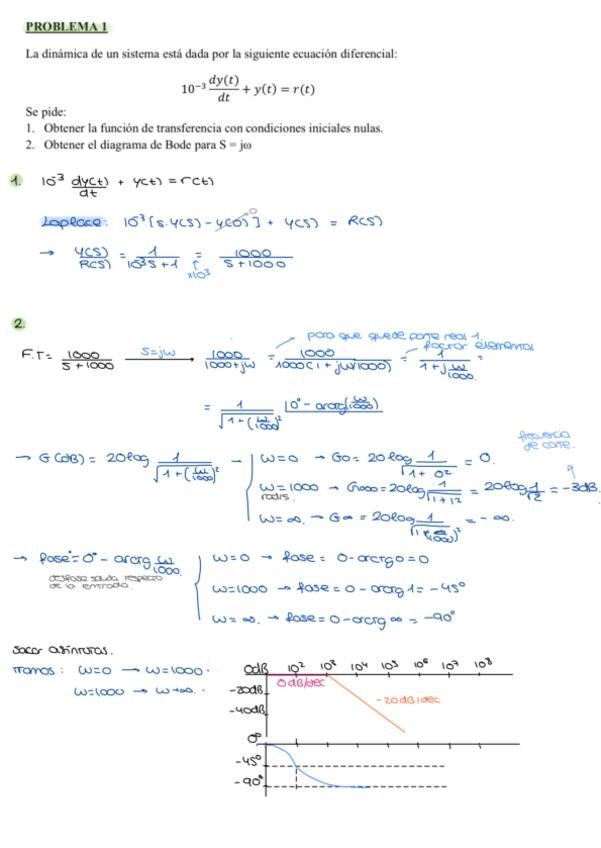 PROBLEMA 1
La dinámica de un sistema está dada por la siguiente ecuación diferencial:
10⁻³ dy(t)/dt + y(t) = r(t)
Se pide:
1. Obtener la función de transferencia con condiciones iniciales nulas.
2. Obtener el diagrama de Bode para S = jω
1. 10⁻³ dy(t)/dt + y(t) = r(t)
Laplace: 10⁻³ [s·Y(s) - y(0)⁰] + Y(s) = R(s)
→ Y(s)/R(s) = 1/(10⁻³s+1) = 1000/(s+1000)
x10³
2.
para que quede parte real 1.
factor elementos
F.T = 1000/(s+1000) s=jw → 1000/(1000+jw) = 1000/(1000(1+jw/1000)) = 1/(1+j w/1000) =
= 1/√(1+(w/1000)²) |0° - arctg(w/1000)
frecuencia de corte.
→ G(dB) = 20log 1/√(1+(w/1000)²) → w=0 → G0 = 20log 1/√(1+0²) = 0.
w=1000 rad/s. → G1000 = 20log 1/√(1+1²) = 20log 1/√2 = -3dB.
w=∞. → G∞ = 20log 1/√(1+(∞/1000)²) = -∞.
→ fase = 0° - arctg w/1000. w=0 → fase = 0-arctg0=0
desfase salida respecto de la entrada.
w=1000 → fase = 0-arctg 1 = -45°
w=∞. → fase = 0-arctg ∞ = -90°
sacar asíntotas.
Tramos: w=0 → w=1000·
w=1000 → w→∞.·
0dB 10² 10³ 10⁴ 10⁵ 10⁶ 10⁷ 10⁸
0dB/dec
-20dB
-20dB/dec
-40dB
0°
-45°
-90°